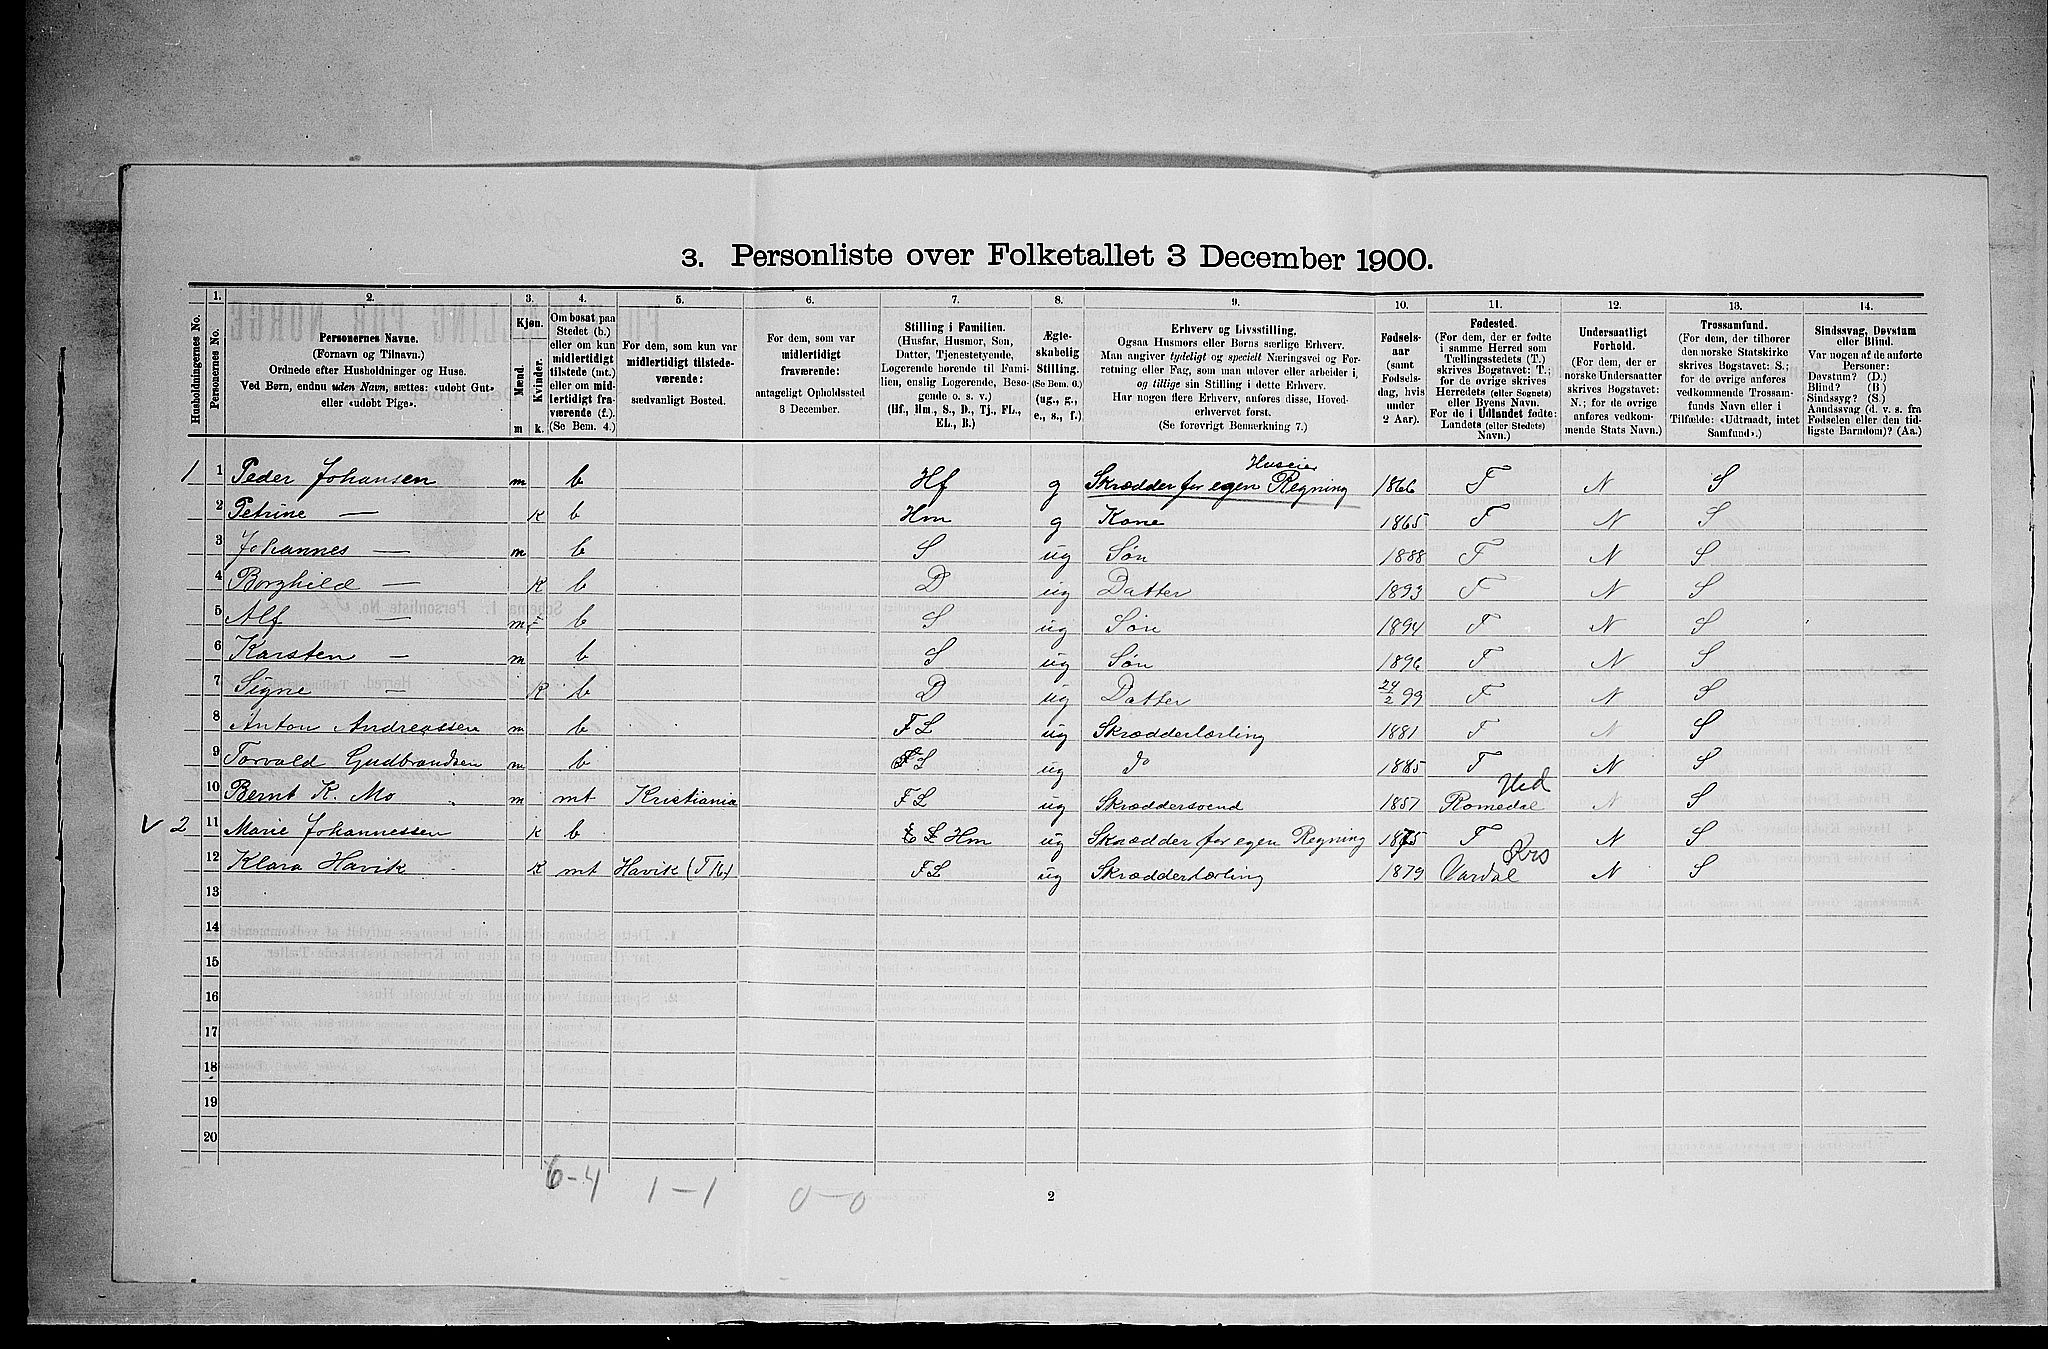 3. Personliste over Folketallet 3 December 1900.
Husholdningernes No.
1. Personernes No.
2. Personernes Navne. (Fornavn og Tilnavn.) Ordnede efter Husholdninger og Huse. Ved Børn, endnu uden Navn, sættes: «udøbt Gut», eller «udøbt Pige».
3. Kjøn. Mænd. m Kvinder. k.
4. Om bosat paa Stedet (b.) eller om kun midlertidigt tilstede (mt.) eller om midlertidigt fraværende (f.). (Se Bem. 4.)
5. For dem, som kun var midlertidigt tilstedeværende: sædvanligt Bosted.
6. For dem, som var midlertidigt fraværende: antageligt Opholdssted 3 December.
7. Stilling i Familien. (Husfar, Husmor, Søn, Datter, Tjenestetyende, Logerende hørende til Familien, enslig Logerende, Besøgende o. s. v.) (Hf., Hm., S., D., Tj., FL., EL., B.)
8. Ægteskabelig Stilling. (Se Bem. 6.) (ug., g., e., s., f.)
9. Erhverv og Livsstilling. Ogsaa Husmors eller Børns særlige Erhverv. Man angiver tydeligt og specielt Næringsvei og Forretning eller Fag, som man udøver eller arbeider i, og tillige sin Stilling i dette Erhverv. Har nogen flere Erhverv, anføres disse, Hovederhvervet først. (Se forøvrigt Bemærkning 7.)
10. Fødselsaar (samt Fødselsdag, hvis under 2 Aar).
11. Fødested. (For dem, der er fødte i samme Herred som Tællingsstedets (T.) skrives Bogstavet: T.; for de øvrige skrives Herredets (eller Sognets) eller Byens Navn. For de i Udlandet fødte: Landets (eller Stedets) Navn.)
12. Undersaatligt Forhold. (For dem, der er norske Undersaatter skrives Bogstavet: N.; for de øvrige anføres vedkommende Stats Navn.)
13. Trossamfund. (For dem, der tilhører den norske Statskirke skrives Bogstavet: S.; for de øvrige anføres vedkommende Trossamfunds Navn eller i Tilfælde: «Udtraadt, intet Samfund».)
14. Sindssvag, Døvstum eller Blind. Var nogen af de anførte Personer: Døvstum? (D.) Blind? (B.) Sindssyg? (S.) Aandssvag (d. v. s. fra Fødselen eller den tidligste Barndom)? (Aa.)
1 1 Peder Johansen m b Hf g Skrædder for egen Regning Huseier 1866 T N S
2 Petrine — k b Hm g Kone 1865 T N S
3 Johannes — m b S ug Søn 1888 T N S
4 Borghild — k b D ug Datter 1893 T N S
5 Alf — m b S ug Søn 1894 T N S
6 Karsten — m b S ug Søn 1896 T N S
7 Signe — k b D ug Datter 24/2 99 T N S
8 Anton Andreassen m b FL ug Skrædderlærling 1881 T N S
9 Torvald Gudbrandsen m b FL ug do 1885 T N S
10 Bernt K. Mo m mt Kristiania FL ug Skræddersvend 1857 Romedal Hed N S
v 2 11 Marie Johannessen k b Hm ug Skrædder for egen Regning 1875 T N S
12 Klara Havik k mt Havik (T Th) FL ug Skrædderlærling 1879 Vardal Krs N S
13
14
15
16
17
18
19
20
6-4 1-1 0-0
2